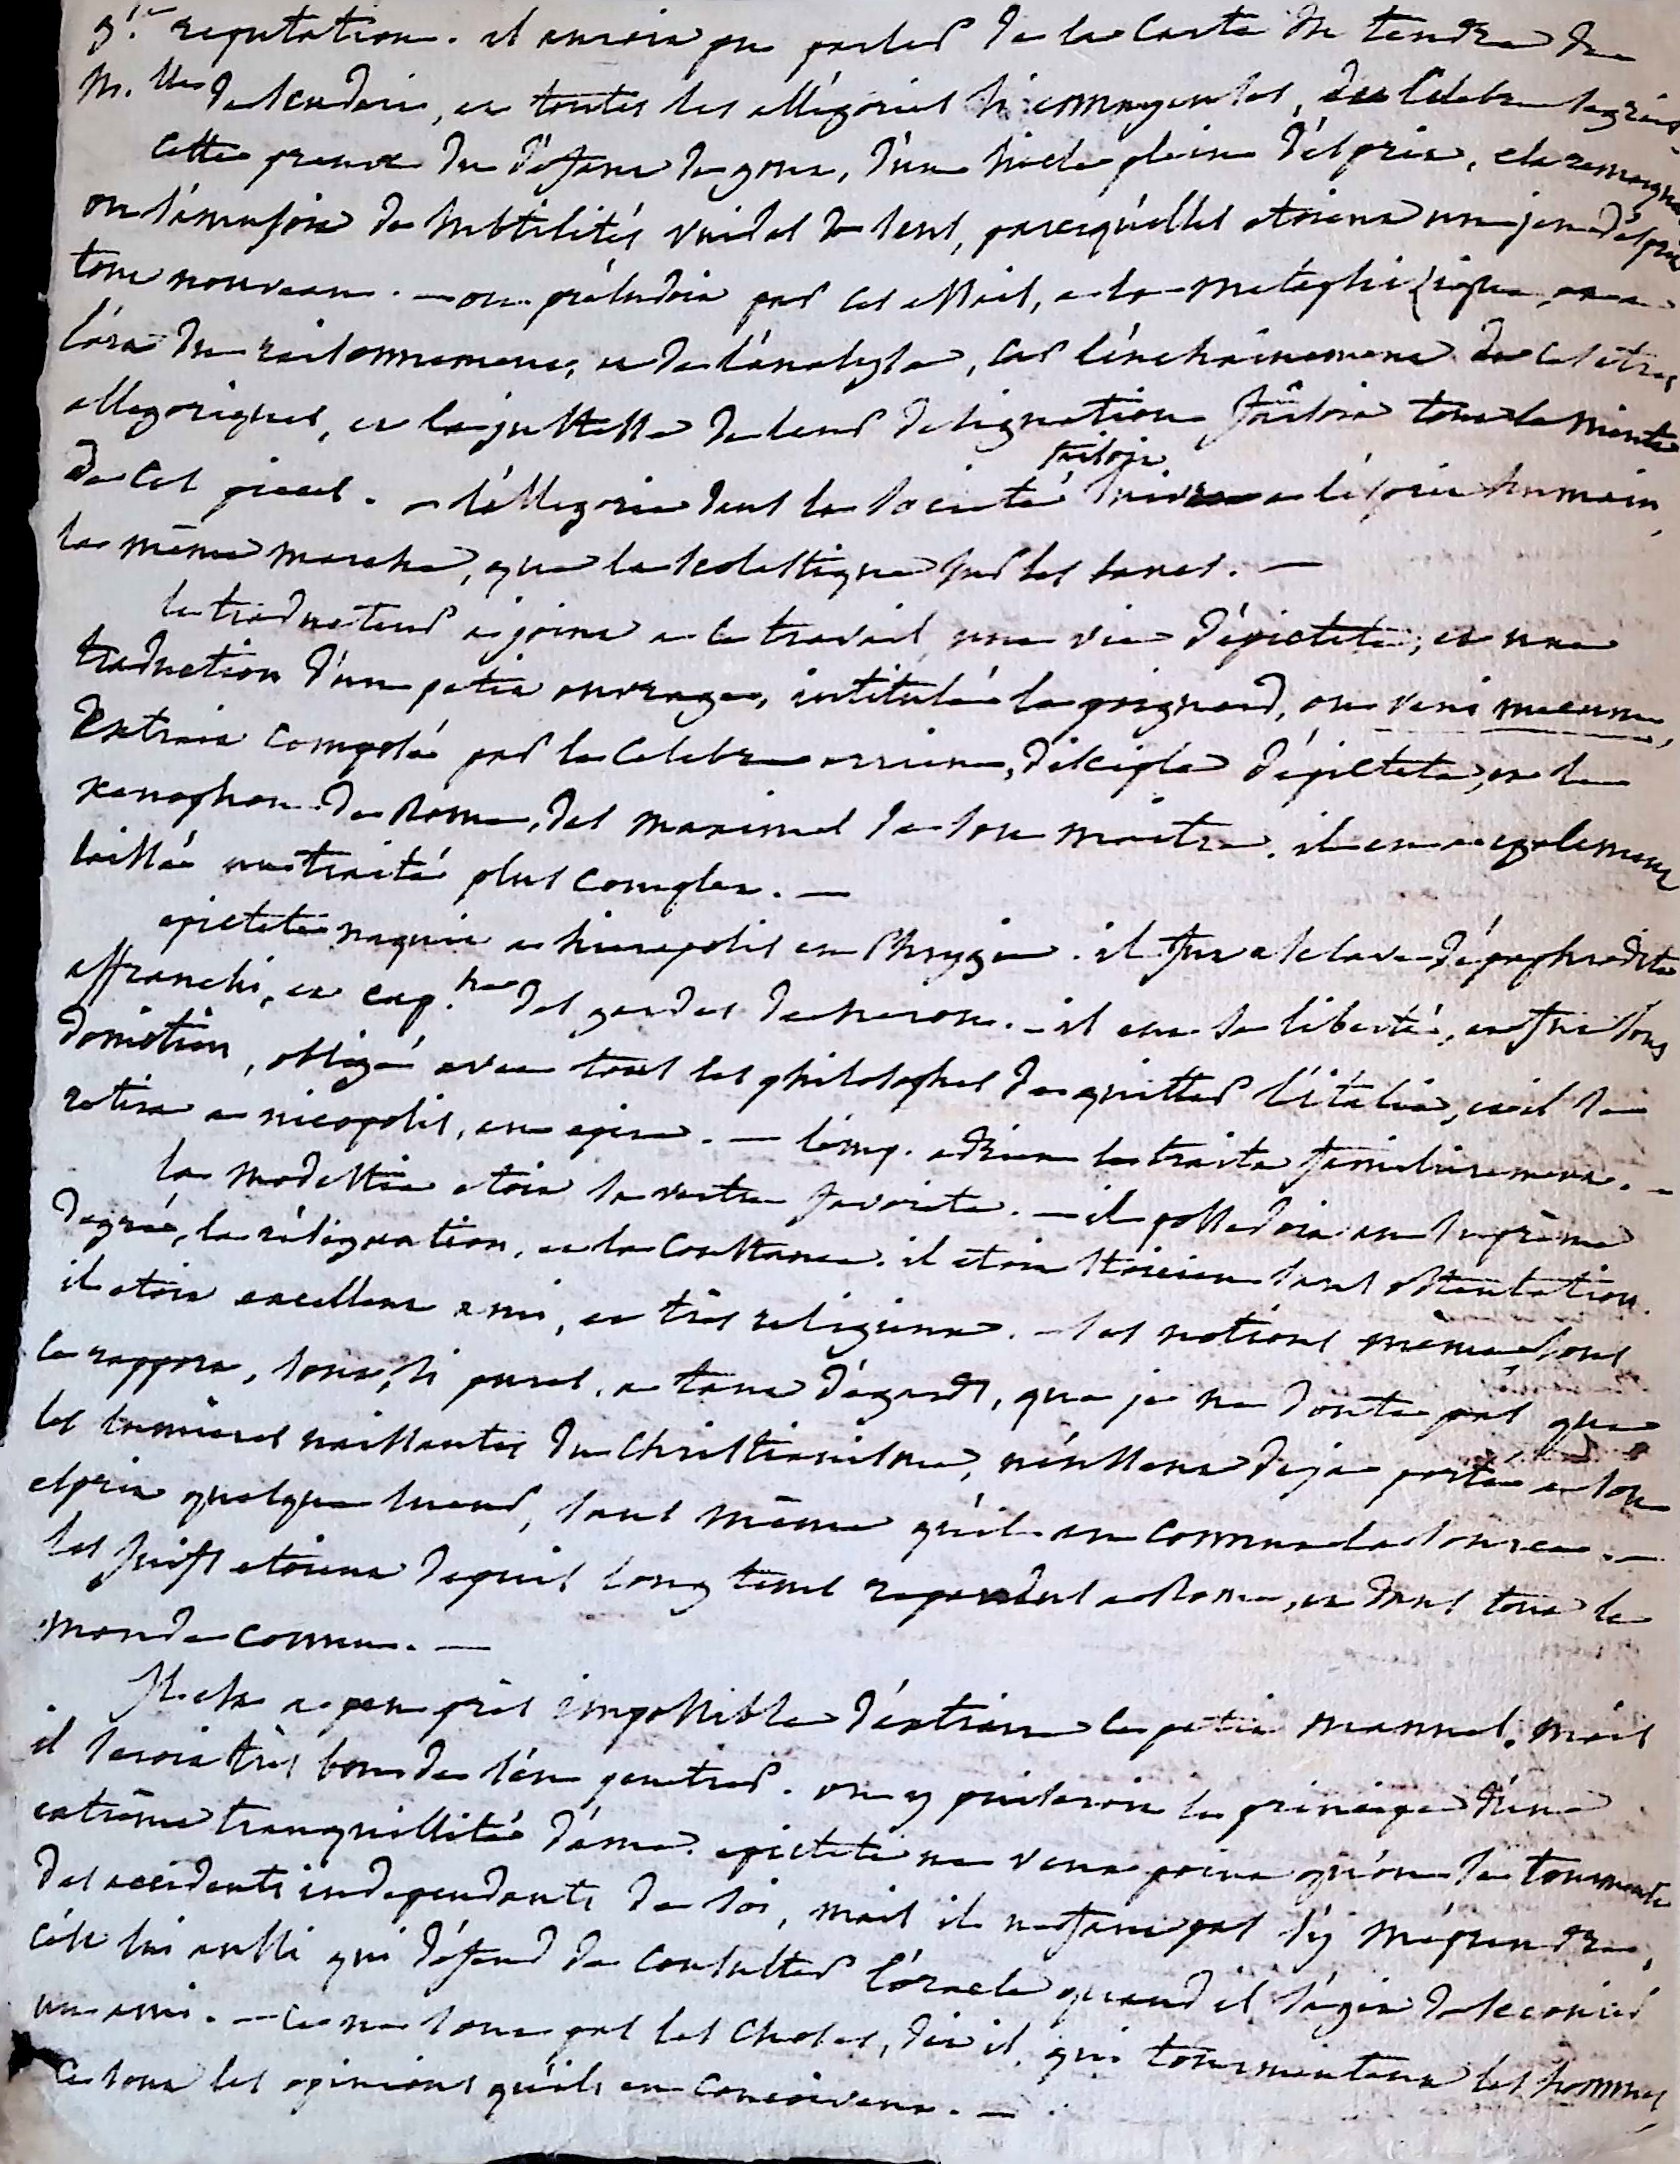 g.de reputation. il auroit pu parler de la carte du tendre de
M.lle de Scuderi, et toutes les allégories si emmagees, du celebre
cette preuve du défaut de gout, d'un siecle plein d'esprit, est remarqua
on s'amusoit de subtilités vuides de sens, parcequ'elles etoient un jeu d'esprit
tout nouveau. — on préludoit par ces essais, a la metaphisique, et a
l'art du raisonnement, et de l'analyse, car l'enchainement de ces etres
allegoriques, et la justesse de leur designation faisoit tout le merite
de ces pieces. — l'allegorie dans la societé faisoit suivre a l'esprit humain,
la même marche, que la scolastique sur les bancs. —
le traducteur a joint a ce travail une vie d'épictete, et une
traduction d'un petit ouvrage, intitulé le poignard, ou veni mecum,
Extrait composé par le celebre arrien, disciple d'épictete, et le
xenophon de Rome, des maximes de son maitre. il en a egalement
laissé un traité plus complet. —
epictete naquit a hierapolis en Phrygie. il fut esclave d'épaphrodite
affranchi, et cap.ne des gardes de neron. — il eut sa liberté, et fut sous
domitien, obligé avec tous les philosophes de quitter l'italie, et il se
retira a nicopolis, en epire. — l'emp. adrien le traita familierement. —
la modestie etoit sa vertu favorite. — il possedoit au suprême
degré, la résignation, et la constance. il etoit stoicien sans ostentation.
il etoit excellent ami, et très religieux. — ses notions même sous
ce rapport, sont si pures, a tant d'égards, que je ne doute pas que
les lumieres naissantes du christianisme, n'eussent deja porté a son
esprit quelque lueur, sans même qu'il en connut la source. —
les juifs etoient depuis long tems repandus a Rome, et dans tout le
monde connu. —
Il est a peu près impossible d'extraire ce petit manuel. mais
il seroit très bon de s'en penetrer. on y puiseroit le principe d'une
extrême tranquillité d'ame. epictete ne veut point qu'on se tourmente
des accidents independants de soi, mais il ne faut pas s'y méprendre,
c'est lui aussi qui défend de consulter l'oracle quand il s'agit de secourir
un ami. — ce ne sont pas les choses, dit il, qui tourmentent les hommes,
ce sont les opinions qu'ils en conçoivent. —